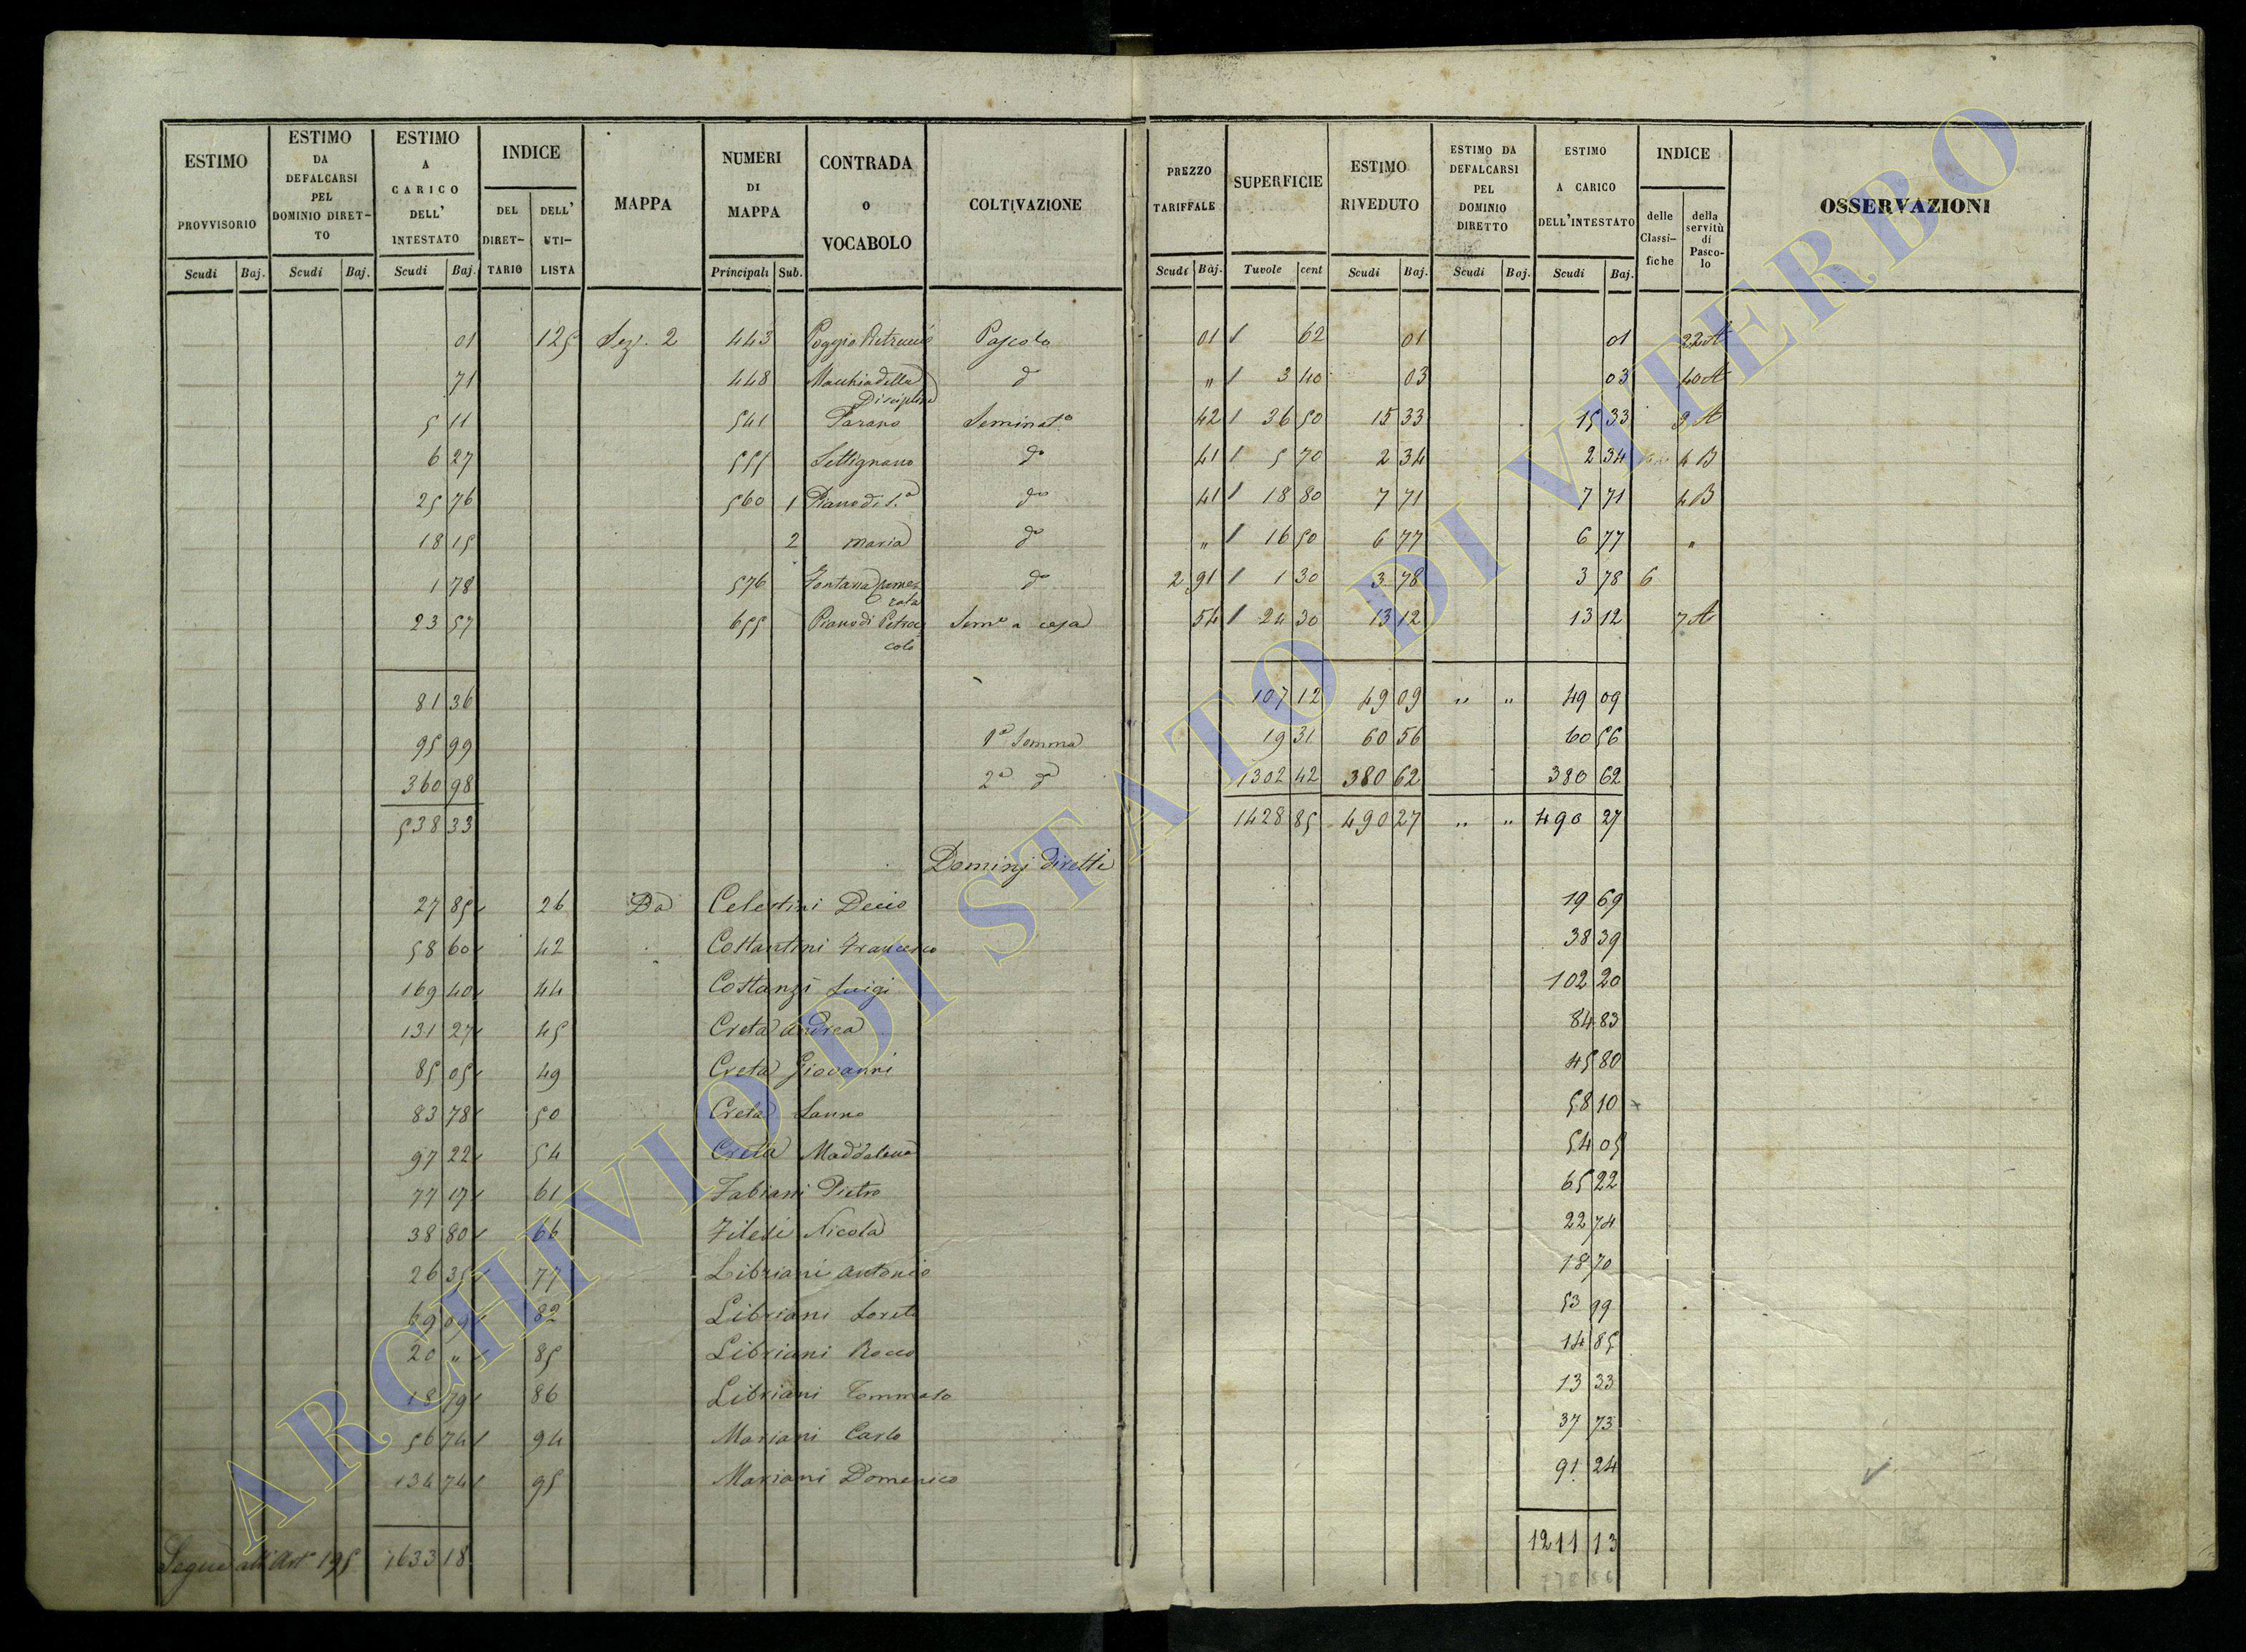 ESTIMO PROVVISORIO
ESTIMO DA DEFALCARSI PEL DOMINIO DIRET-TO
ESTIMO A CARICO DELL' INTESTATO
INDICE
DEL DIRET-TARIO
DELL' UTI-LISTA
MAPPA
NUMERI DI MAPPA
CONTRADA o VOCABOLO
COLTIVAZIONE
PREZZO TARIFFALE
SUPERFICIE
ESTIMO RIVEDUTO
ESTIMO DA DEFALCARSI PEL DOMINIO DIRETTO
ESTIMO A CARICO DELL'INTESTATO
INDICE
delle Classi-fiche
della servitù di Pasco-lo
OSSERVAZIONI
Scudi Baj. Scudi Baj. Scudi Baj. Principali Sub. Scudi Baj. Tuvole cent Scudi Baj. Scudi Baj. Scudi Baj.
01 125 Sez. 2 443 Poggio Pascolo 01 62 01 01 22 A
71 448 Macchia della Disciplina do " 3 40 03 03 40 A
5 11 541 Farano Seminato 42 36 50 15 33 15 33 3 A
6 27 555 Settignano do 41 5 70 2 34 2 34 4 B
25 76 560 1 Piano di S.a do 41 18 80 7 71 7 71 4 B
18 15 2 maria do " 16 50 6 77 6 77 "
1 78 576 Fontana do 2 91 1 30 3 78 3 78 6
23 57 655 Piano di Petrac colo Semo a casa 54 24 30 13 12 13 12 7 A
81 36 107 12 49 09 " " 49 09
95 99 1a Somma 19 31 60 56 60 56
360 98 2a do 1302 42 380 62 380 62
538 33 1428 85 490 27 " " 490 27
Dominj diretti
27 85 26 Da Celestini Decio 19 69
58 60 42 Costantini Francesco 38 39
169 40 44 Costanzi Luigi 102 20
131 27 45 Creta Andrea 84 83
85 05 49 Creta Giovanni 45 80
83 78 50 Creta 58 10
97 22 54 Creta Maddalena 54 05
77 17 61 Fabiani Pietro 65 22
38 80 66 Filesi Nicola 22 74
26 35 77 Libriani Antonio 18 70
69 09 82 Libriani Loreto 53 99
20 " 85 Libriani Rocco 14 85
18 79 86 Libriani Tommaso 13 33
56 74 94 Mariani Carlo 37 73
134 74 95 Mariani Domenico 91 24
Segue all'Art. 195 1633 18 1211 13
ARCHIVIO DI STATO DI VITERBO